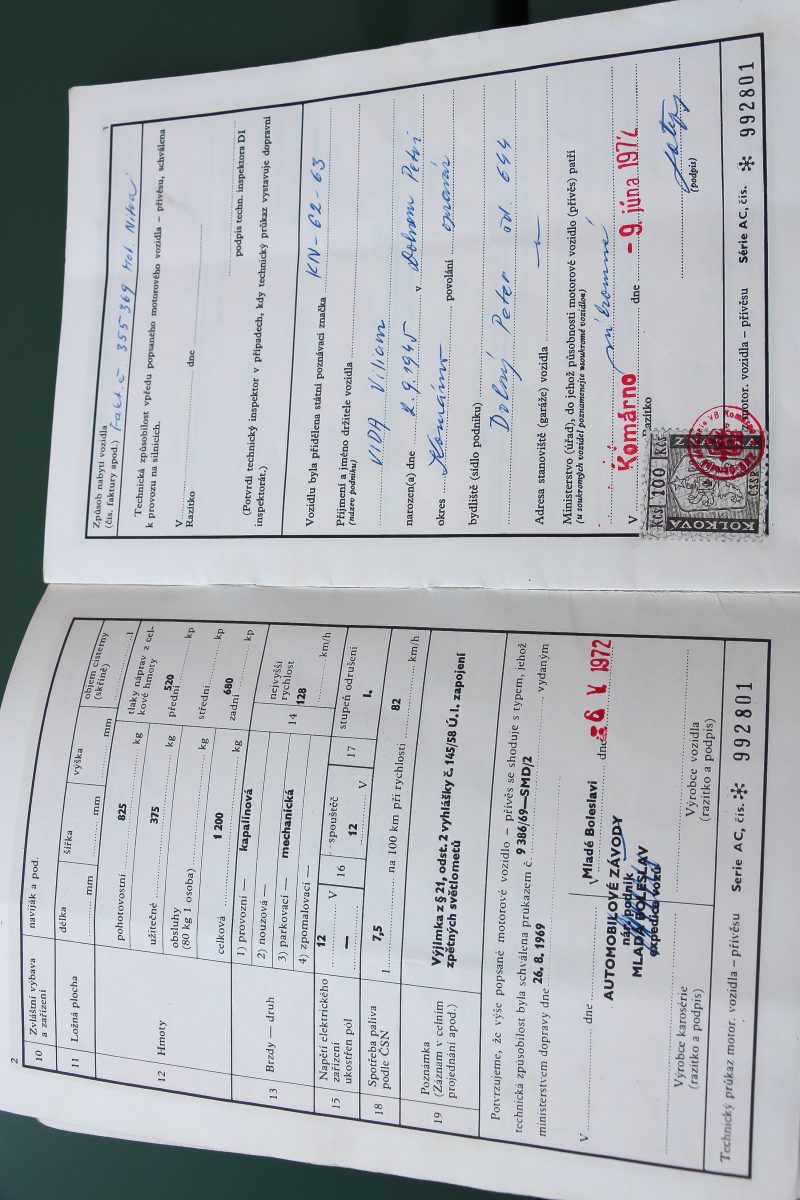 2
10 Zvláštní výbava a zařízení
naviják a pod.
objem cisterny (skříně) l
11 Ložná plocha
délka mm
šířka mm
výška mm
12 Hmoty
pohotovostní 825 kg
užitečné 375 kg
obsluhy (80 kg 1 osoba) kg
celková 1 200 kg
tlaky náprav z celkové hmoty
520 přední kp
střední kp
680 zadní kp
13 Brzdy — druh
1) provozní — kapalinová
2) nouzová —
3) parkovací — mechanická
4) zpomalovací —
14 nejvyšší rychlost
128 km/h
15 Napětí elektrického zařízení 12 V
ukostřen pól —
16 spouštěč 12 V
17 stupeň odrušení I.
18 Spotřeba paliva podle ČSN
l 7,5 na 100 km při rychlosti 82 km/h
19 Poznámka (Záznam v celním projednání apod.)
Výjimka z § 21, odst. 2 vyhlášky č. 145/58 Ú. l. zapojení
zpětných světlometů
Potvrzujeme, že výše popsané motorové vozidlo – přívěs se shoduje s typem, jehož
technická způsobilost byla schválena průkazem č. 9 386/69—SMD/2
ministerstvem dopravy dne 26. 8. 1969 vydaným
V dne
V Mladé Boleslavi dne 6 V 1972
AUTOMOBILOVÉ ZÁVODY
nár. podnik
MLADÁ BOLESLAV
expedice vozů
Výrobce karosérie
(razítko a podpis)
Výrobce vozidla
(razítko a podpis)
Technický průkaz motor. vozidla – přívěsu Série AC, čís. ✻ 992801
Způsob nabytí vozidla
(čís. faktury apod.) Fakt. č 355 369 Mot. Nitra
Technická způsobilost vpředu popsaného motorového vozidla – přívěsu, schválena
k provozu na silnicích.
V dne
Razítko
podpis techn. inspektora DI
(Potvrdí technický inspektor v případech, kdy technický průkaz vystavuje dopravní
inspektorát.)
Vozidlu byla přidělena státní poznávací značka KN-62-63
Příjmení a jméno držitele vozidla
(název podniku)
VIDA Viliam
narozen(a) dne 2.9.1945 v Dolnom Petri
okres Komárno povolání
bydliště (sídlo podniku)
Dolný Peter čd. 644
Adresa stanoviště (garáže) vozidla
Ministerstvo (úřad), do jehož působnosti motorové vozidlo (přívěs) patří
(u soukromých vozidel poznamenejte „soukromé vozidlo“)
súkromné
V Komárno dne - 9. júna 1972
Razítko
(podpis)
KOLKOVÁ
100 Kčs
motor. vozidla – přívěsu Série AC, čís. ✻ 992801